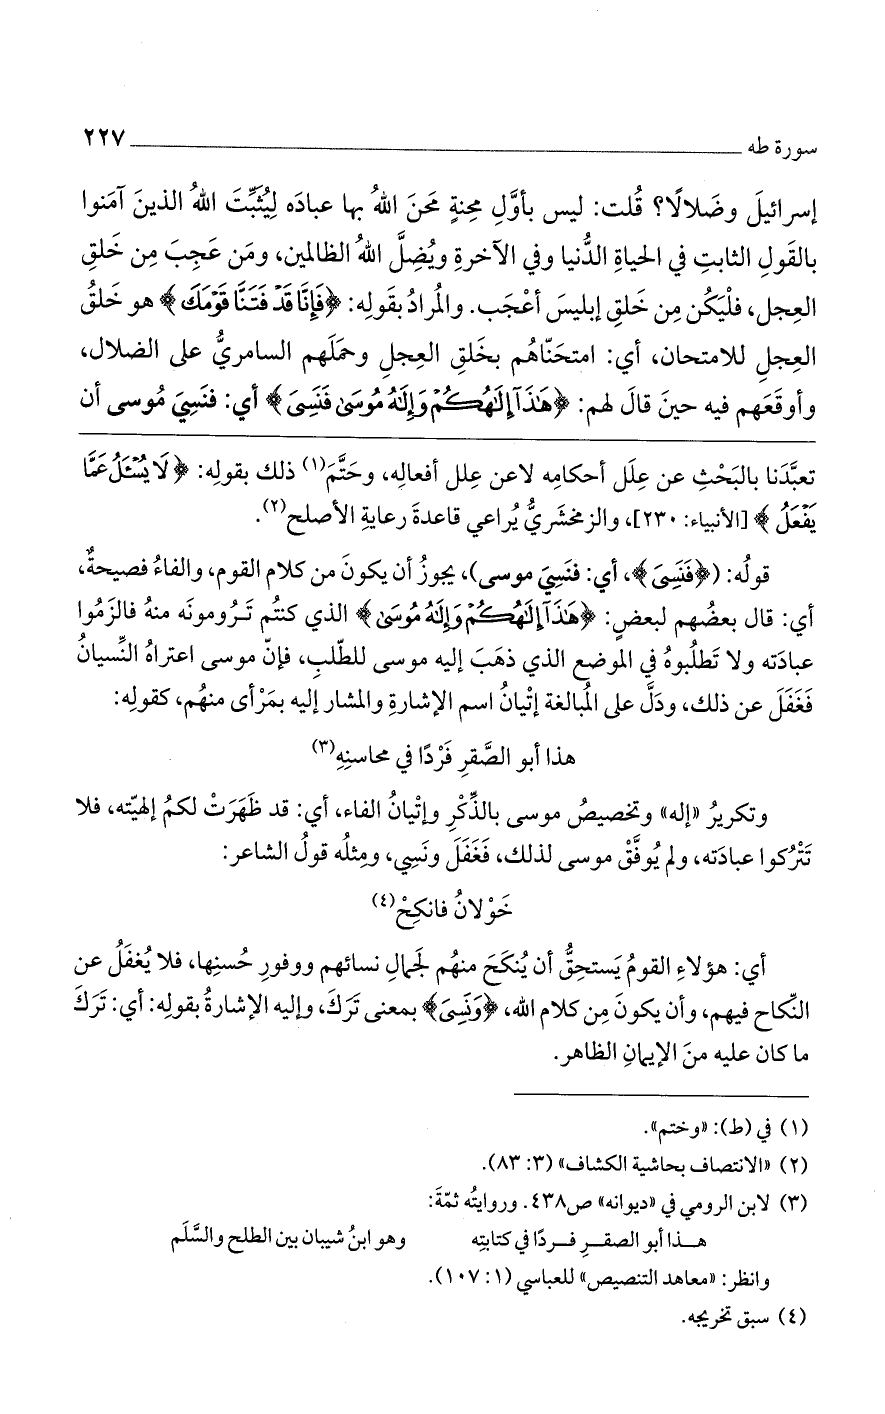 سورة طه ٢٢٧
إسرائيلَ وضَلالًا؟ قُلت: ليس بأوَّلِ مِحنةٍ مَحَنَ اللهُ بها عبادَه لِيُثَبِّتَ اللهُ الذينَ آمَنوا
بالقَولِ الثابتِ في الحياةِ الدُّنيا وفي الآخرةِ ويُضِلَّ اللهُ الظالمين، ومَن عَجِبَ مِن خَلقِ
العِجل، فلْيَكُن مِن خَلقِ إبليسَ أعْجَب. والمُرادُ بقَولِه: ﴿فَإِنَّا قَدْ فَتَنَّا قَوْمَكَ﴾ هو خَلقُ
العِجلِ للامتحان، أي: امتحَنّاهُم بخَلقِ العِجلِ وحمَلَهم السامريُّ على الضلال،
وأوقَعَهم فيه حينَ قالَ لهم: ﴿هَٰذَآ إِلَٰهُكُمْ وَإِلَٰهُ مُوسَىٰ فَنَسِىَ﴾ أي: فنَسِيَ مُوسى أن
تعبَّدَنا بالبَحْثِ عن عِلَل أحكامِه لاعن عِلل أفعالِه، وحَتَّمَ(١) ذلك بقولِه: ﴿لَا يُسْـَٔلُ عَمَّا
يَفْعَلُ﴾ [الأنبياء: ٢٣٠]، والزمخشريُّ يُراعي قاعدةَ رعايةِ الأصلح(٢).
قولُه: (﴿فَنَسِىَ﴾، أي: فنَسِيَ موسى)، يجوزُ أن يكونَ من كلام القوم، والفاءُ فصيحةٌ،
أي: قال بعضُهم لبعضٍ: ﴿هَٰذَآ إِلَٰهُكُمْ وَإِلَٰهُ مُوسَىٰ﴾ الذي كنتُم تَرومونَه منهُ فالزَمُوا
عبادَته ولا تَطلُبوهُ في الموضع الذي ذهَبَ إليه موسى للطّلبِ، فإنّ موسى اعتراهُ النِّسيانُ
فَغَفَلَ عن ذلك، ودَلَّ على المُبالغة إتْيانُ اسم الإشارةِ والمشار إليه بمَرْأى منهُم، كقولِه:
هذا أبو الصَّقرِ فَرْدًا في محاسنِهِ(٣)
وتكريرُ «إله» وتخصيصُ موسى بالذِّكْرِ وإتْيانُ الفاء، أي: قد ظَهَرَتْ لكمُ إلهيّته، فلا
تَتْرُكوا عبادَته، ولم يُوفَّقْ موسى لذلك، فَغَفَلَ ونَسِي، ومِثلُه قولُ الشاعر:
خَوْلانُ فانكِحْ(٤)
أي: هؤلاءِ القومُ يَستحِقُّ أن يُنكَحَ منهُم لجَمالِ نسائهم ووفورِ حُسنِها، فلا يُغفَلُ عن
النِّكاح فيهم، وأن يكونَ مِن كلام الله، ﴿وَنَسِىَ﴾ بمعنى تَرَكَ، وإليه الإشارةُ بقولِه: أي: تَرَكَ
ما كان عليه منَ الإيمانِ الظاهر.
(١) في (ط): «وختم».
(٢) «الانتصاف بحاشية الكشاف» (٣: ٨٣).
(٣) لابن الرومي في «ديوانه» ص٤٣٨. وروايتُه ثمّةَ:
هـذا أبو الصقـرِ فـردًا في كتابتِه وهو ابنُ شيبان بين الطلح والسَّلَم
وانظر: «معاهد التنصيص» للعباسي (١: ١٠٧).
(٤) سبق تخريجه.